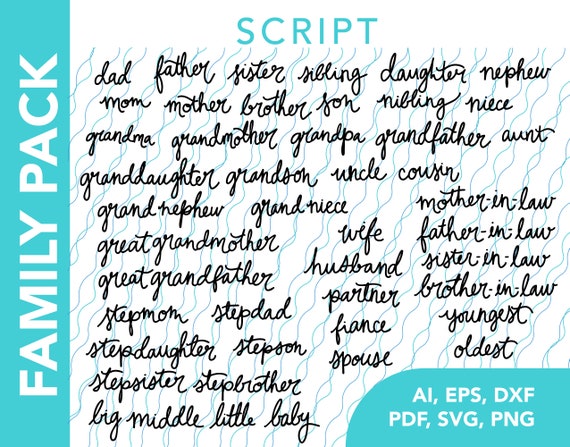 SCRIPT
FAMILY PACK
dad father sister sibling daughter nephew
mom mother brother son nibling niece
grandma grandmother grandpa grandfather aunt
granddaughter grandson uncle cousin
grand nephew grand niece
great grandmother
great grandfather
stepmom stepdad
stepdaughter stepson
stepsister stepbrother
big middle little baby
wife
husband
partner
fiance
spouse
mother-in-law
father-in-law
sister-in-law
brother-in-law
youngest
oldest
AI, EPS, DXF
PDF, SVG, PNG